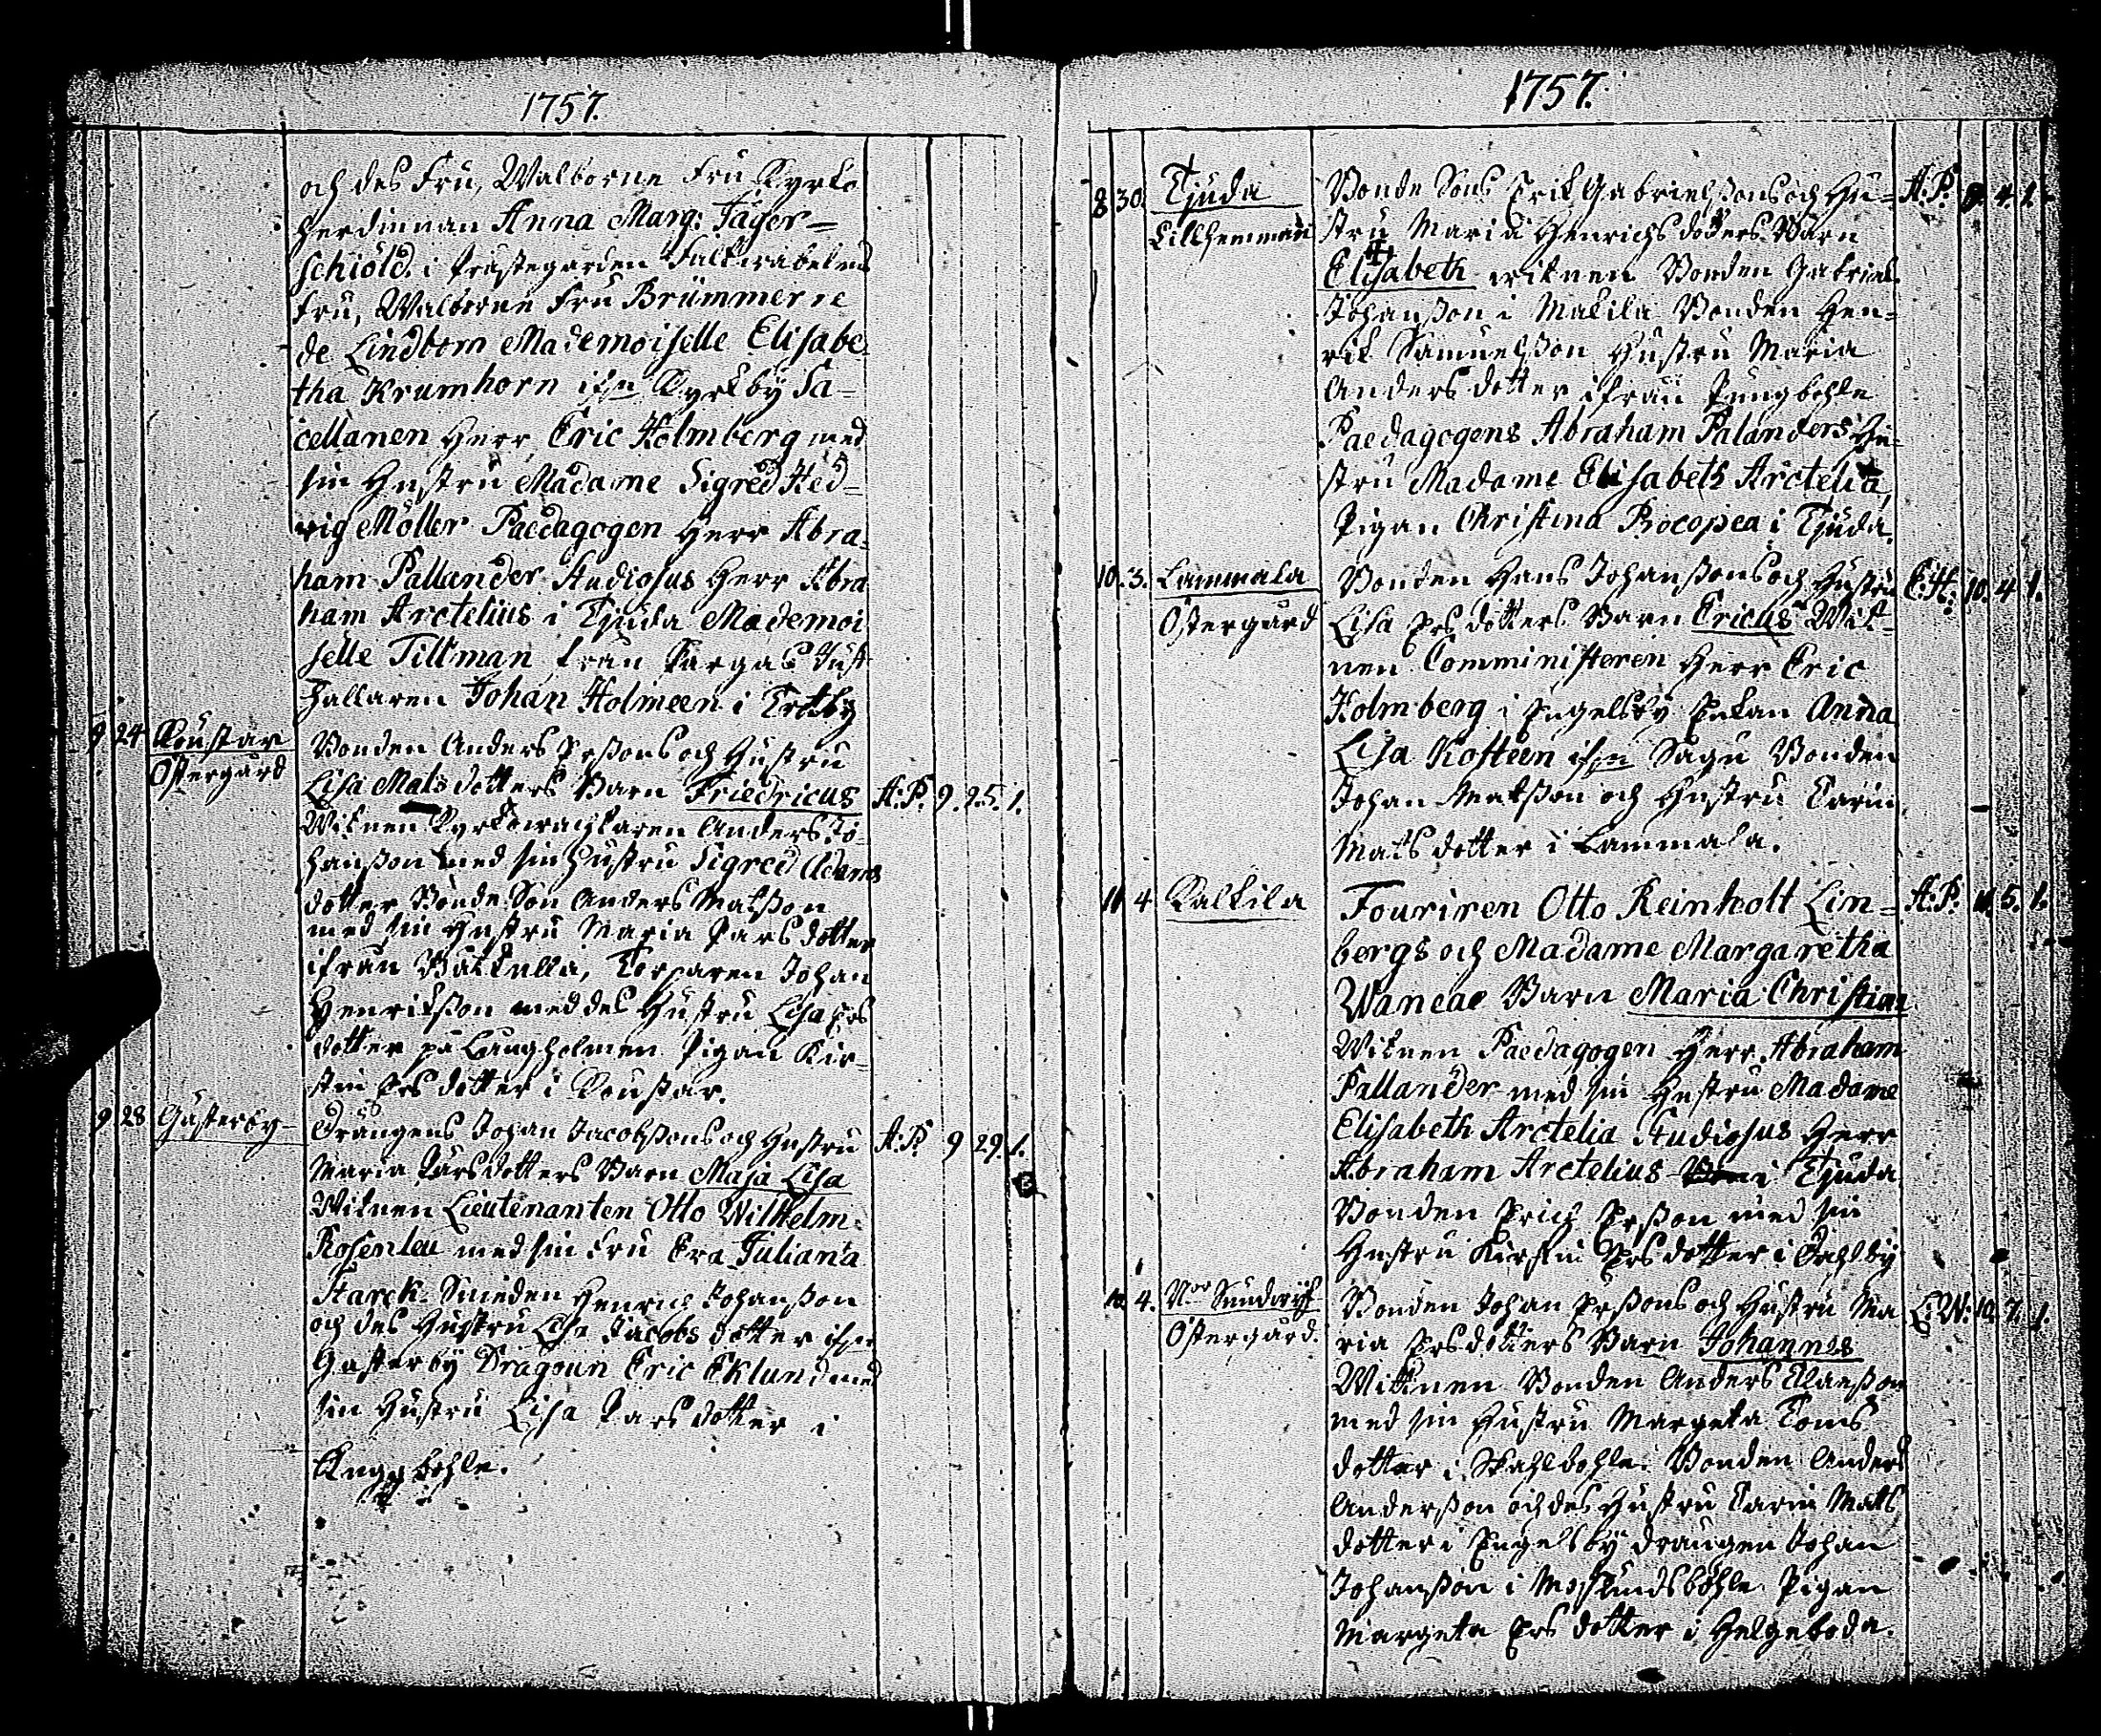 1757.
och des Fru, Walborne Fru Kyrko
herdinnan Anna Marg: Jäger=
schiöld. i Prästegården Fältwäbelns
Fru, Walborne Fru Brümmer ne
de Lindborn Mademoiselle Elisabe
tha Krumhorn ifrn Kyrkby Sa=
cellanen Herr Eric Holmberg med
sin Hustru Madame Sigred Hed=
vig Möller Paedagogen Herr Abra=
ham Pallander Studiosus Herr Abra
ham Arctelius i Tjuda Mademoi
selle Tillman från Pargas Just
hallaren Johan Holmeen i
9 24 Koustar
Östergård
Bonden Anders Ersons och Hustru
Lisa Mats dotters Barn Friedricus A. P. 9. 25. 1.
Witnen Kyrkowachtaren Anders Jo=
hanßon med sin Hustru Sigred Adams
dotter Bonde Son Anders Matßon
med sin Hustru Maria Pars dotter
ifrån Torparen Johan
Henrikßon med des Hustru Lisa Ers
dotter på Langholmen Pigan Kir=
stin Ers dotter i Koustar.
9 28 Gästerby
Drängens Johan Jacobßons och Hustru A. P. 9 29. 1.
Maria Larsdotters Barn Maja Lisa
Witnen Lieutenanten Otto Wilhelm
Rosenleu med sin Fru Eva Juliana
Starck. Smeden Henrich Johanßon
och des Hustru Lise Jacobs dotter ifrn
Gasterby Dragoun Eric Eklund med
sin Hustru Lisa Lars dotter i
Engsbohle.
1757.
8 30. Tjuda
Lillhemman
Bonde Sons Erik Gabrielßons och Hu= A. P. 9. 4. 1.
stru Maria Henrichs dotters Barn
Elisabeth witnen Bonden Gabriel
Johanßon i Makila Bonden Hen=
rik Samuelßon Hustru Maria
Anders dotter ifrån Pungbohle
Paedagogens Abraham Palanders Hu=
stru Madame Elisabeth Arctelia,
Pigan Christina Procopea i Tjuda.
10. 3. Lammala
Östergård
Bonden Hans Johanßons och Hustru E. H. 10. 4. 1.
Lisa Ers dotters Barn Ericus Wit=
nen Comministeren Herr Eric
Holmberg i Engelsby Enkan Anna
Lisa Kosteen ifrn Sagu Bonden
Johan Matßon och Hustru Carin
Mats dotter i Lammala.
11 4 Kalkila
Fouriren Otto Reinholt Lin= A. P. 11. 5. 1.
bergs och Madame Margaretha
Waneae Barn Maria Christina
Witnen Paedagogen Herr Abraham
Pallander med sin Hustru Madame
Elisabeth Arctelia Studiosus Herr
Abraham Arctelius i Tjuda
Bonden Erich Erßon med sin
Hustru Kirstin Ers dotter i Dahlby
10 4. Nor Sundwijk
Östergård.
Bonden Johan Erßons och Hustru Ma E. W. 10. 7. 1.
ria Ersdotters Barn Johannes
Wittnen Bonden Anders Claeßon
med sin Hustru Margeta Toms
dotter i Stahlbohle. Bonden Anders
Anderßon och des Hustru Carin Mats
dotter i Engelsby Drängen Johan
Johanßon i Pigan
Margeta Ers dotter i Helgeboda.